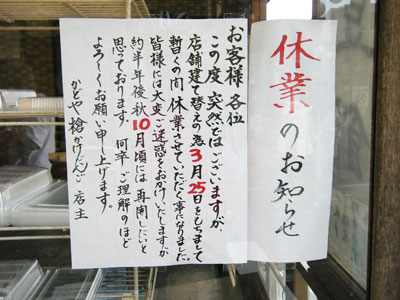 休業のお知らせ
お客様各位
この度 突然ではございますが、
店舗建て替えの為3月25日をもちまして
暫くの間 休業させていただく事になりました。
皆様には大変ご迷惑をおかけいたしますが
約半年後秋10月頃には 再開したいと
思っております。何卒 ご理解のほど
よろしくお願い申し上げます。
かどや 槍かけだんご 店主